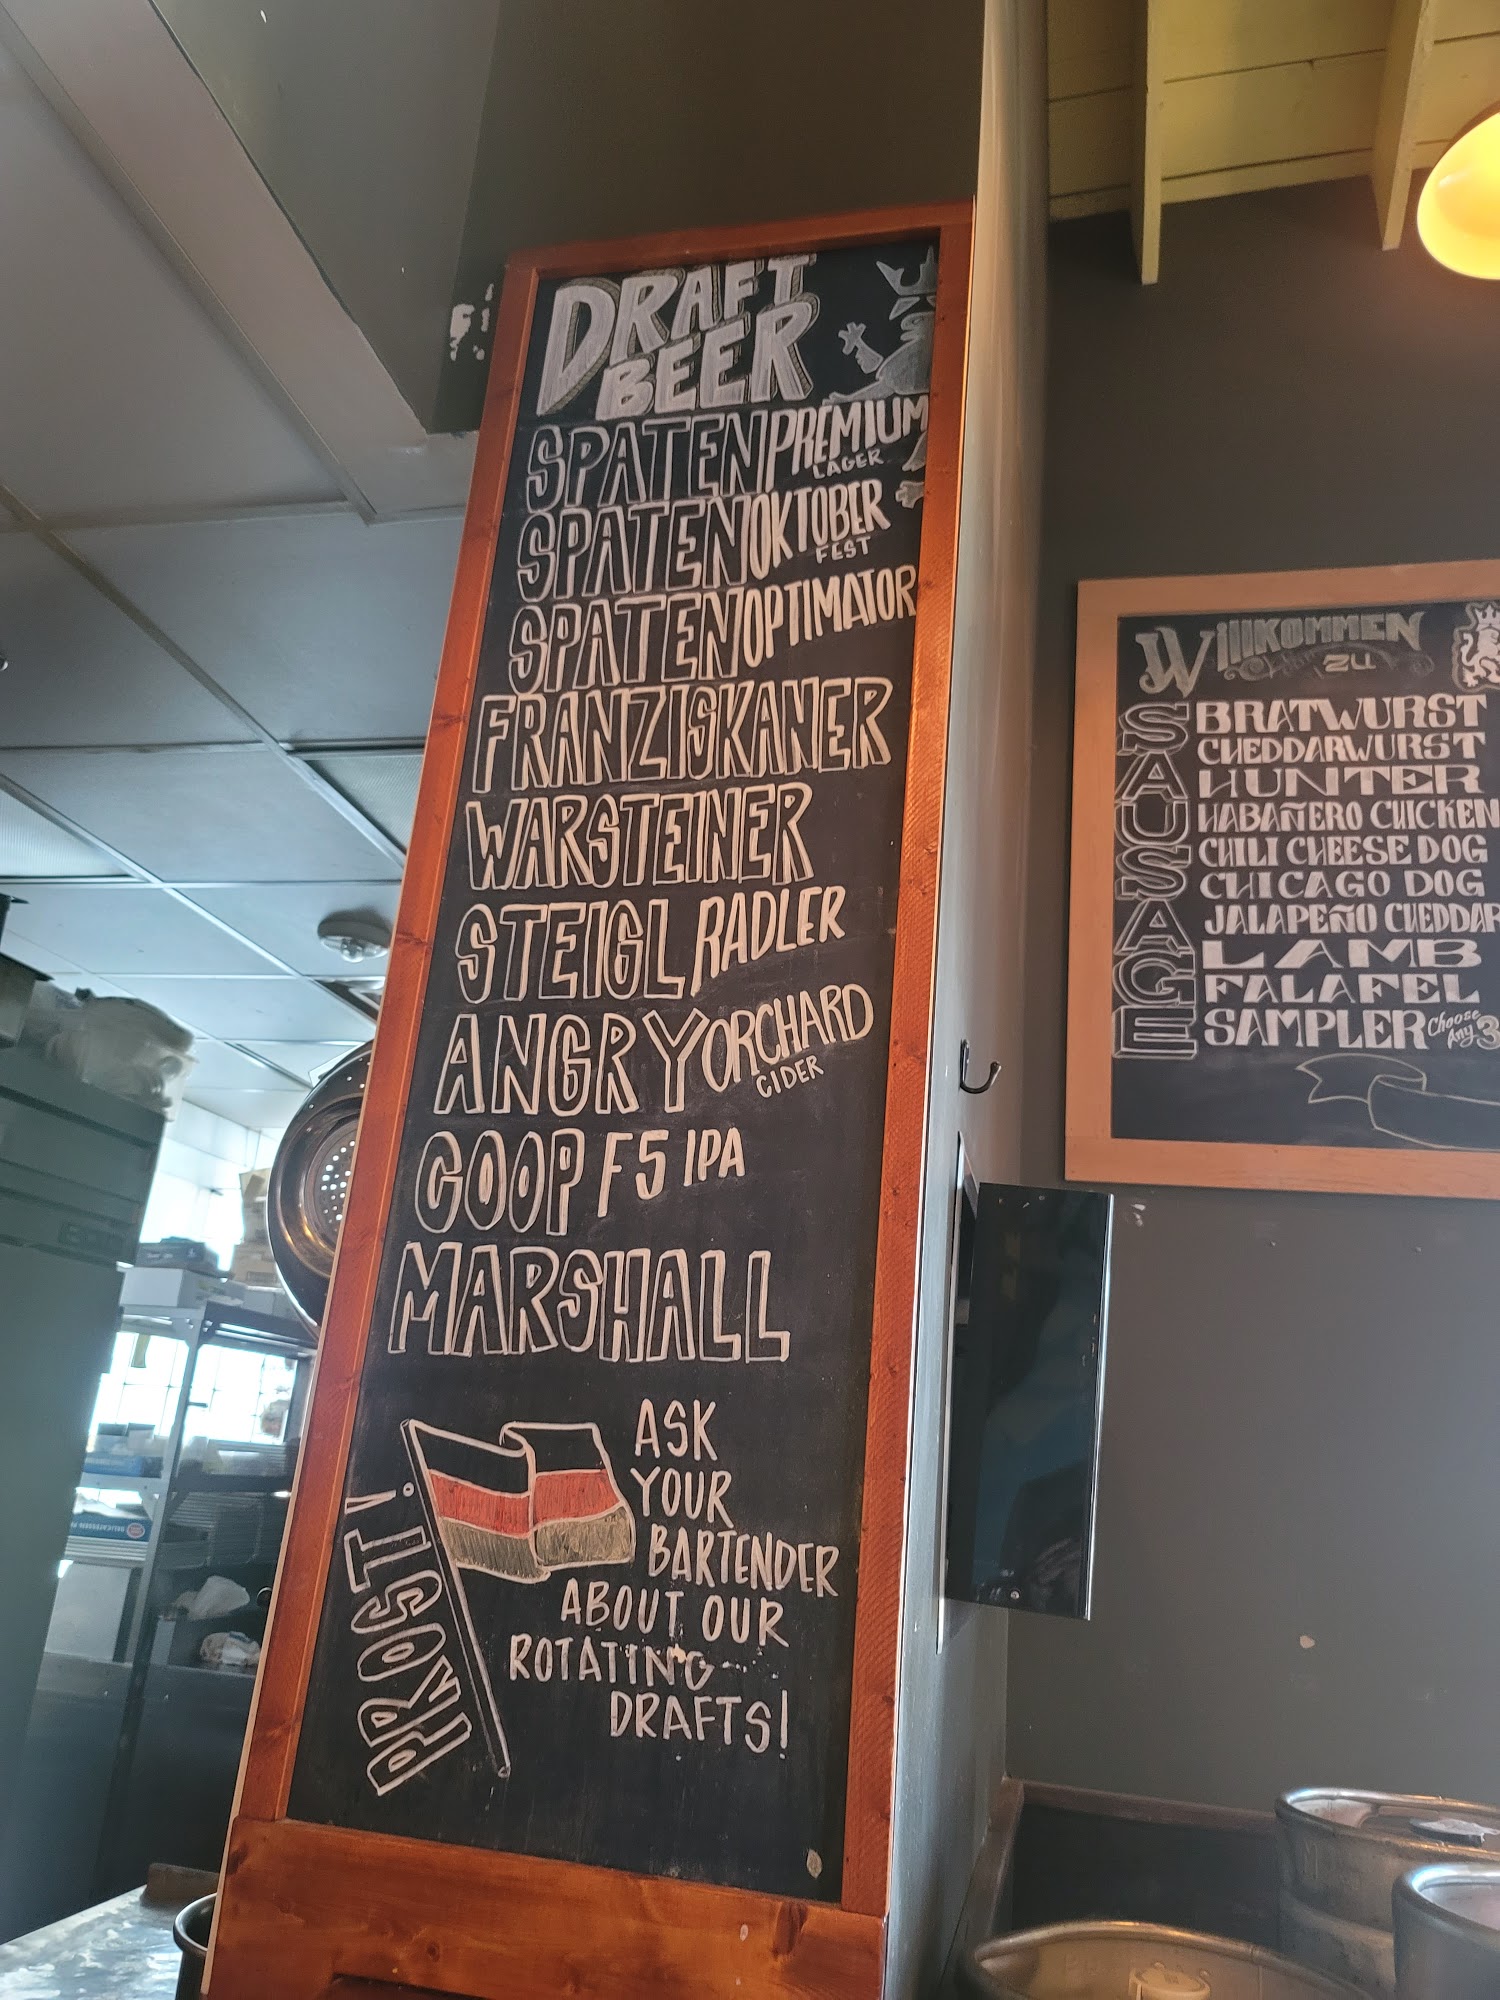 DRAFT
BEER
SPATEN PREMIUM
LAGER
SPATEN OKTOBER
FEST
SPATEN OPTIMATOR
FRANZISKANER
WARSTEINER
STEIGL RADLER
ANGRY ORCHARD
CIDER
COOP F5 IPA
MARSHALL
PROST!
ASK
YOUR
BARTENDER
ABOUT OUR
ROTATING
DRAFTS!
WILLKOMMEN
ZU
SAUSAGE
BRATWURST
CHEDDARWURST
HUNTER
HABAÑERO CHICKEN
CHILI CHEESE DOG
CHICAGO DOG
JALAPEÑO CHEDDAR
LAMB
FALAFEL
SAMPLER Choose
Any 3